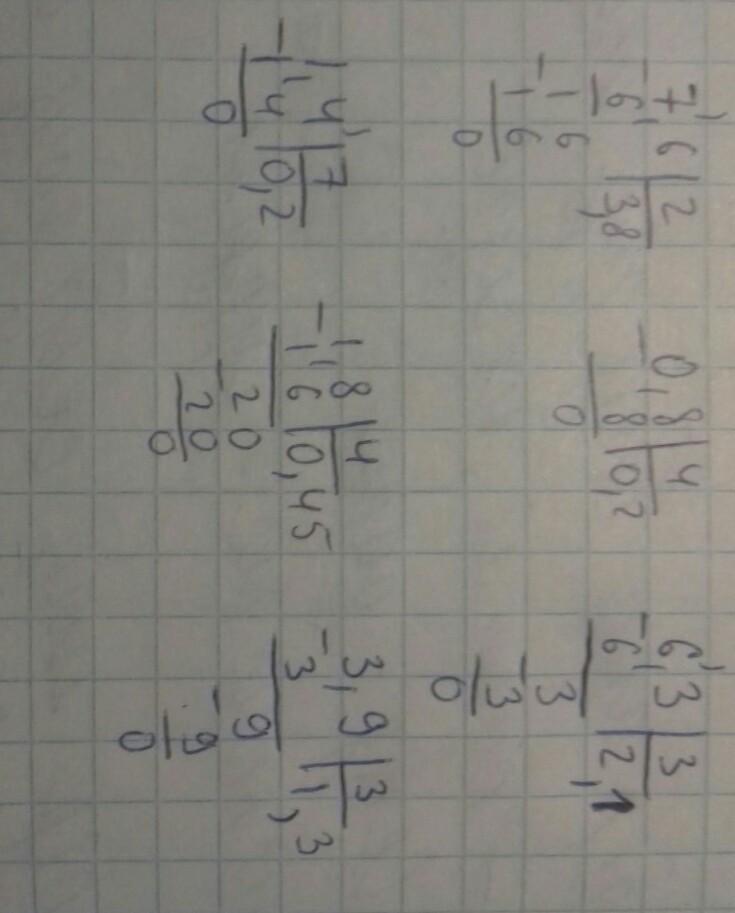 7,6 | 2
- 6 | 3,8
- 16
16
0
0,8 | 4
- 8 | 0,2
0
6,3 | 3
- 6 | 2,1
- 3
3
0
1,4 | 7
- 1,4 | 0,2
0
1,8 | 4
- 1 6 | 0,45
- 20
20
0
3,9 | 3
- 3 | 1,3
- 9
9
0